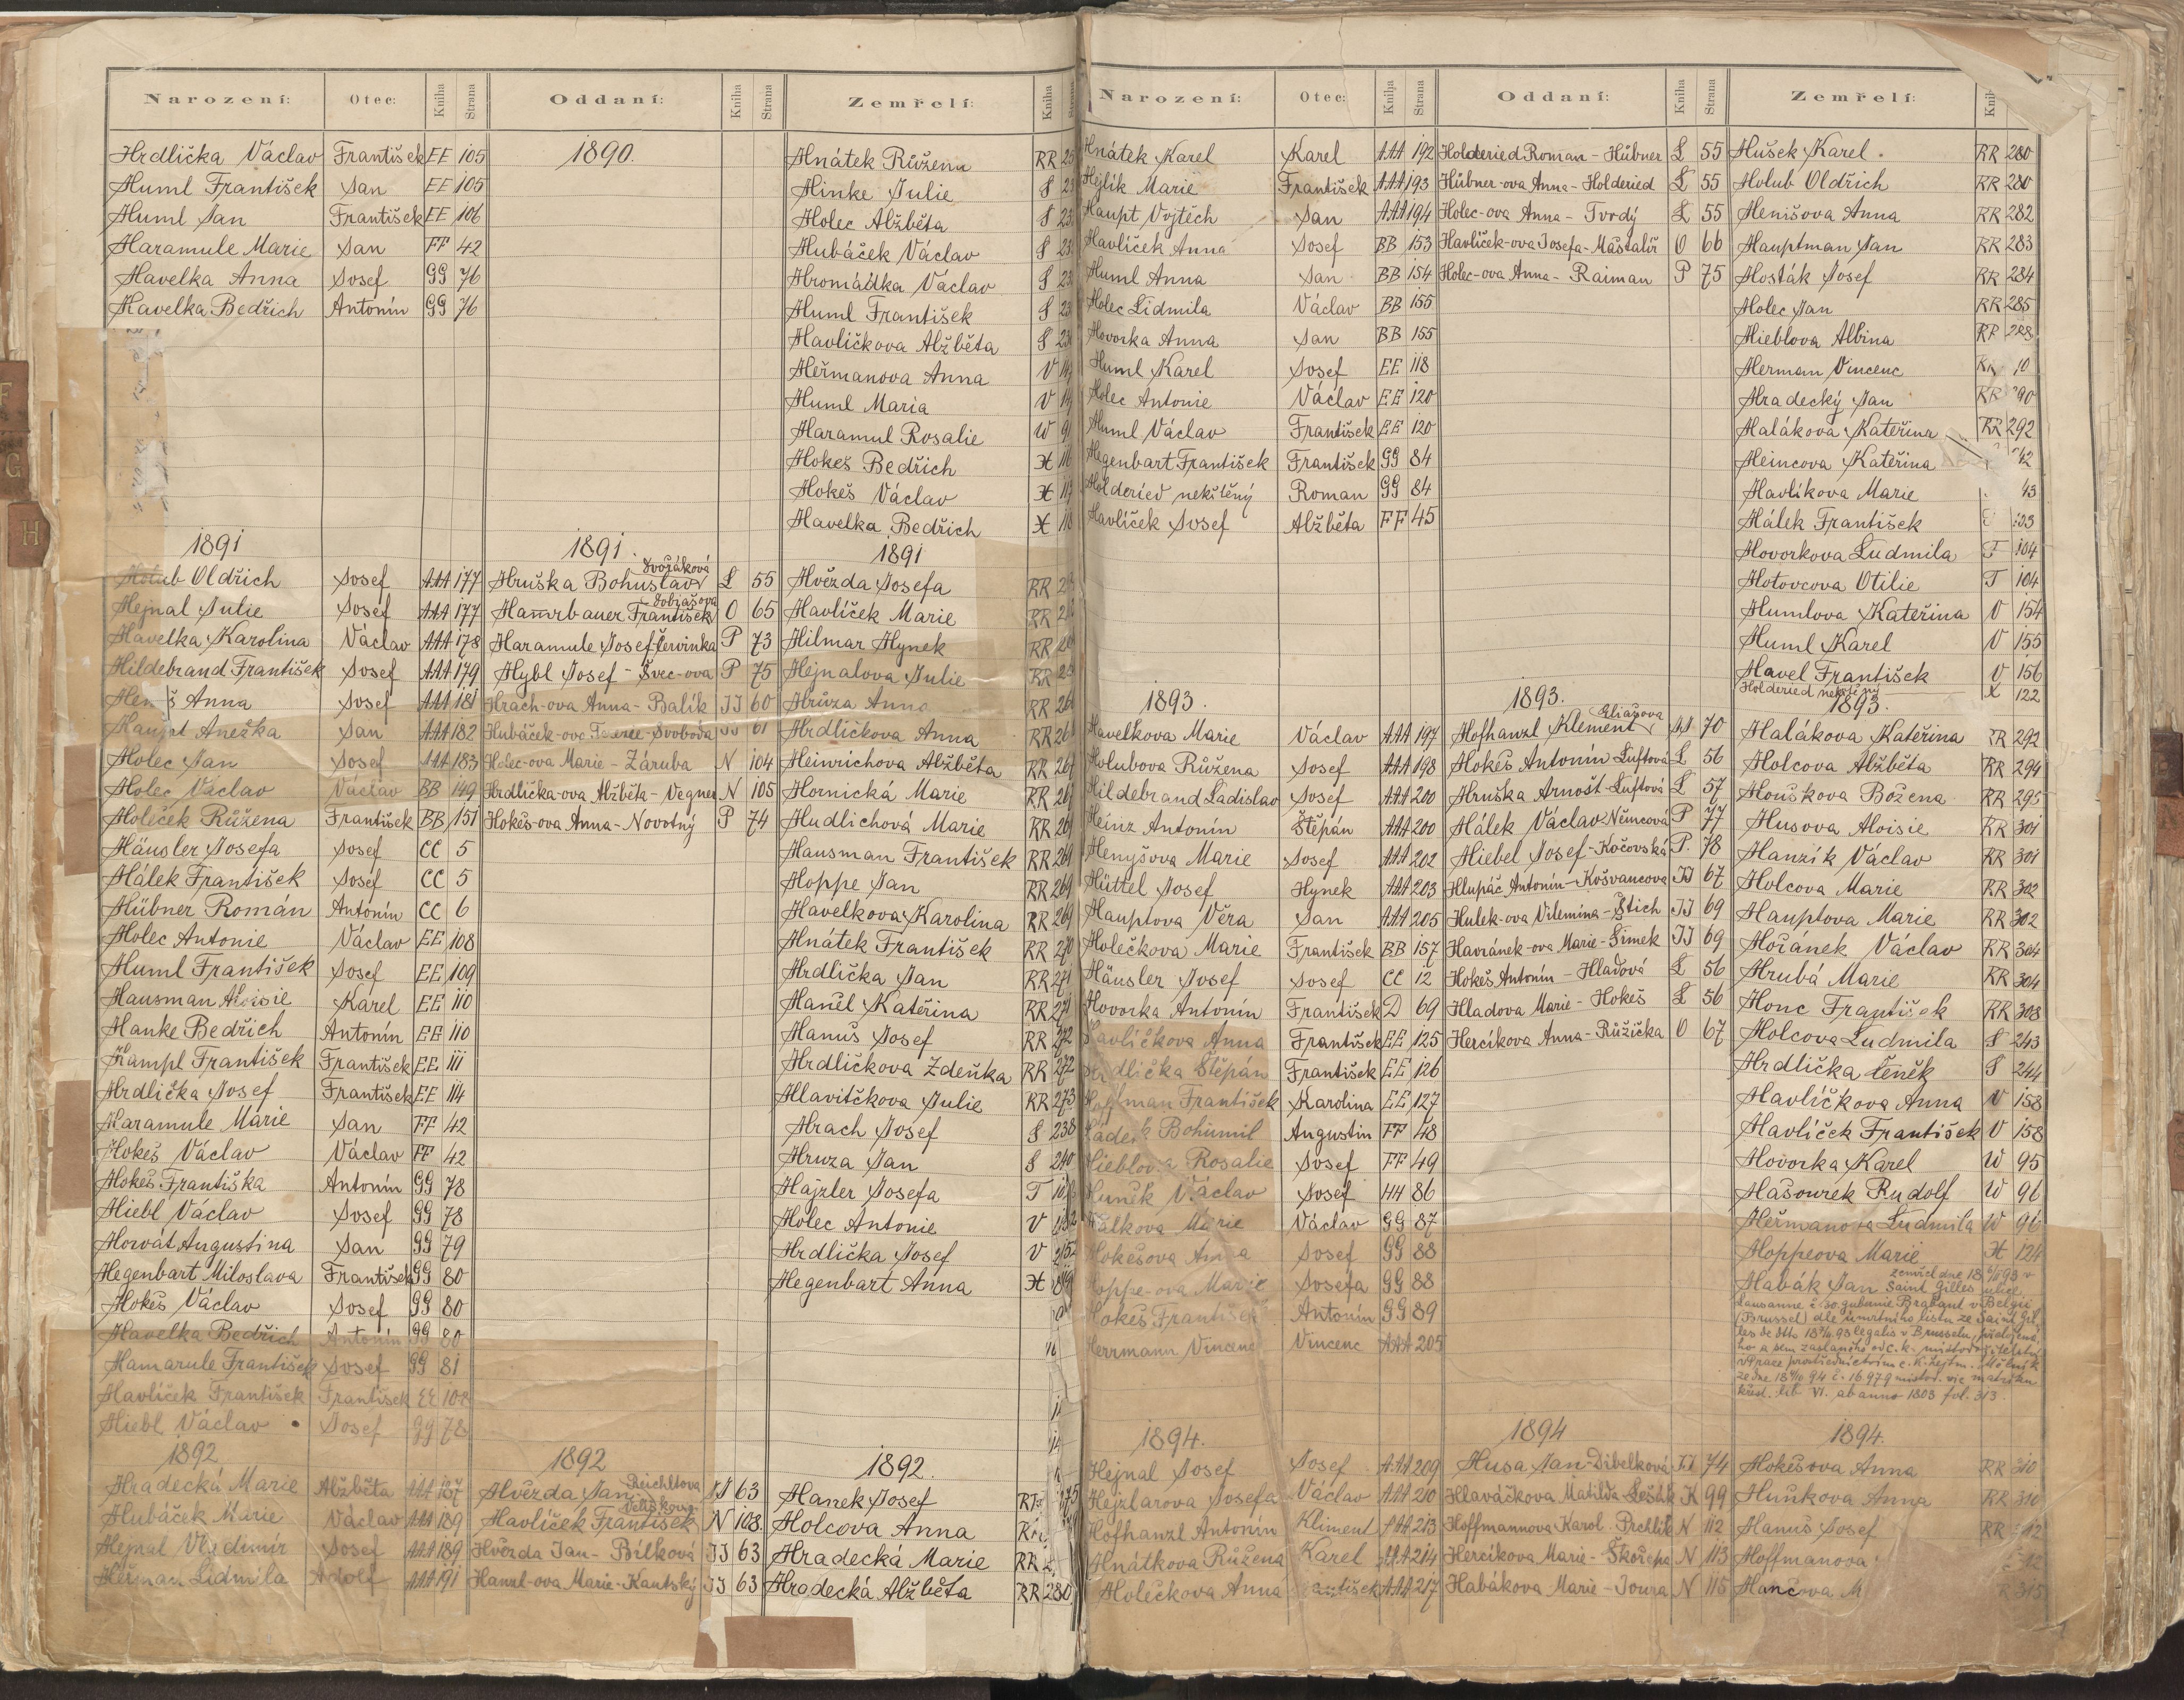 Narození: Otec: Kniha Strana Oddaní: Kniha Strana Zemřelí: Kniha Strana
Hrdlička Václav František EE 105 1890. Hnátek Růžena RR
Huml František Jan EE 105 Hinke Julie S
Huml Jan František EE 106 Holec Alžběta S
Haramule Marie Jan FF 42 Hubáček Václav S
Havelka Anna Josef GG 76 Hromádka Václav S
Havelka Bedřich Antonín GG 76 Huml František S
Havlíčkova Alžběta S
Heřmanova Anna V
Huml Maria V
Haramul Rosalie W
Hokeš Bedřich H
Hokeš Václav H
Havelka Bedřich H
1891 1891. 1891
Holub Oldřich Josef AAA 177 Hruška Bohuslav Dvořáková L 55 Hvězda Josefa RR
Hejnal Julie Josef AAA 177 Hamrbauer František Tobiášova O 65 Havlíček Marie RR
Havelka Karolina Václav AAA 178 Haramule Josef-Červinka P 73 Hilmar Hynek RR
Hildebrand František Josef AAA 179 Hybl Josef - Švec-ova P 75 Hejnalova Julie RR
Anna Josef AAA 181 Hrach-ova Anna - Balík JJ 60 Hrůza Anna RR
Haupt Anežka Jan AAA 182 Hubáček-ova - Svoboda JJ 61 Hrdličkova Anna RR
Holec Jan Josef AAA 183 Holec-ova Marie - Záruba N 104 Heinrichova Alžběta RR 267
Holec Václav Václav BB 149 Hrdlička-ova Alžběta - Vegner N 105 Hornická Marie RR
Holeček Růžena František BB 151 Hokeš-ova Anna - Novotný P 74 Hudlichová Marie RR 269
Häusler Josefa Josef CC 5 Hausman František RR 269
Hálek František Josef CC 5 Hoppe Jan RR 269
Hübner Román Antonín CC 6 Havelkova Karolina RR 269
Holec Antonie Václav EE 108 Hnátek František RR 270
Huml František Josef EE 109 Hrdlička Jan RR 271
Hausman Aloisie Karel EE 110 Hanêl Kateřina RR 271
Hanke Bedřich Antonín EE 110 Hanuš Josef RR 272
Hampl František František EE 111 Hrdličkova Zdeňka RR 272
Hrdlička Josef František EE 114 Hlavitčkova Julie RR 273
Haramule Marie Jan FF 42 Hrach Josef S 238
Hokeš Václav Václav FF 42 Hruza Jan S 240
Hokeš Františka Antonín GG 78 Hajzler Josefa T
Hiebl Václav Josef GG 78 Holec Antonie V
Horvát Augustina Jan GG 79 Hrdlička Josef V
Hegenbart Miloslava František GG 80 Hegenbart Anna H
Hokeš Václav Josef GG 80
Havelka Bedřich Antonín GG 80
Hamarule František Josef GG 81
Havlíček František František EE 108
Hiebl Václav Josef GG 78
1892 1892 1892.
Hradecká Marie Alžběta AAA 187 Hvězda Jan Reichltova JJ 63 Hanek Josef
Hubáček Marie Václav AAA 189 Havlíček František Veliškova N 108. Holcova Anna
Hejnal Vladimír Josef AAA 189 Hvězda Jan - Bílková JJ 63 Hradecká Marie RR
Heřman Lidmila Adolf AAA 191 Hanzl-ova Marie-Kautský JJ 63 Hradecká Alžběta RR 280
Narození: Otec: Kniha Strana Oddaní: Kniha Strana Zemřelí:
Hnátek Karel Karel AAA 192 Holderied Roman - Hübner L 55 Hušek Karel. RR 280
Hejlík Marie František AAA 193 Hübner-ova Anna - Holderied L 55 Holub Oldřich RR 280
Haupt Vojtěch Jan AAA 194 Holec-ova Anna - Tvrdý L 55 Henišova Anna RR 282
Havlíček Anna Josef BB 153 Havlíček-ova Josefa-Maštalíř O 66 Hauptman Jan RR 283
Huml Anna Jan BB 154 Holec-ova Anna - Raiman P 75 Hosták Josef RR 284
Holec Lidmila Václav BB 155 Holec Jan RR 285
Hovorka Anna Jan BB 155 Hieblova Albina RR 288
Huml Karel Josef EE 118 Herman Vincenc
Holec Antonie Václav EE 120 Hradecký Jan RR
Huml Václav František EE 120 Halákova Kateřina RR 292
Hegenbart František František GG 84 Heincova Kateřina
Holderied nekřtěný Roman GG 84 Havlíkova Marie
Havlíček Josef Alžběta FF 45 Hálek František
Hovorkova Ludmila T 104
Hotovcova Otilie T 104
Humlova Kateřina V 154
Huml Karel V 155
Havel František V 156
Holderied nekřtěný X 122
1893. 1893. 1893.
Havelkova Marie Václav AAA 197 Hofhanzl Klement Eliášova 70 Halákova Kateřina RR 292
Holubova Růžena Josef AAA 198 Hokeš Antonín-Luftová L 56 Holcova Alžběta RR 294
Hildebrand Ladislav Josef AAA 200 Hruška Arnošt-Luftová L 57 Houškova Božena RR 295
Heinz Antonín Štěpán AAA 200 Hálek Václav-Němcová P 77 Husova Aloisie RR 301
Henyšova Marie Josef AAA 202 Hiebel Josef-Kočovská P. 78 Hanzík Václav RR 301
Hüttel Josef Hynek AAA 203 Hlupáč Antonín-Košvancova JJ 67 Holcova Marie RR 302
Hauptova Věra Jan AAA 205 Hulek-ova Vilemína - Štich JJ 69 Hauptova Marie RR 302
Holečkova Marie František BB 157 Havránek-ova Marie-Šimek JJ 69 Hořánek Václav RR 304
Häusler Josef Josef CC 12 Hokeš Antonín - Hladová L 56 Hrubá Marie RR 304
Hovorka Antonín František D 69 Hladova Marie - Hokeš L 56 Honc František RR 308
Havlíčkova Anna František EE 125 Hercíkova Anna-Růžička O 67 Holcova Ludmila S 243
Hrdlička Štěpán František EE 126 Hrdlička Čeněk S 244
Hoffman František Karolina EE 127 Havlíčkova Anna V 158
Bohumil Augustin FF 48 Havlíček František V 158
Hieblova Rosalie Josef FF 49 Hovorka Karel W 95
Václav Josef HH 86 Hašourek Rudolf W 96
Hálkova Marie Václav GG 87 Heřmanova Ludmila W 96
Hokešova Anna Josef GG 88 Hoppeova Marie H 124
Hoppe-ova Marie Josefa GG 88 Habák Jan zemřel dne 18 93 v Saint Gilles ulice
Hokeš František Antonín GG 89 Lausanne č. 30. gubernie Brabant v Belgii
(Brussel) dle úmrtního listu ze Saint Gil-
Herrmann Vincenc Vincenc AAA 205 les de dto 93 legalis v Brusselu, přelože-
ho a sem zaslaného od c.k. místodržitelství
v Praze prostřednictvím c.k. hejtm. Mělník
ze dne 94 č. 16979 místod. viz matriku
lib. VI. ab anno 1803 fol. 313.
1894. 1894 1894.
Hejnal Josef Josef AAA 209 Husa Jan-Dibelková JJ 74 Hokešova Anna RR 310
Hejzlarova Josefa Václav AAA 210 Hlaváčkova Matilda-Lošťák K 99 Huňkova Anna RR 310
Hofhanzl Antonín Kliment AAA 213 Hoffmannova Karol. Prchlík N 112 Hanuš Josef RR
Hnátkova Růžena Karel AAA 214 Hercíkova Marie - Skořepa N 113 Hoffmanova
Holečkova Anna AAA 217 Habákova Marie - Joura N 115 Hančova M